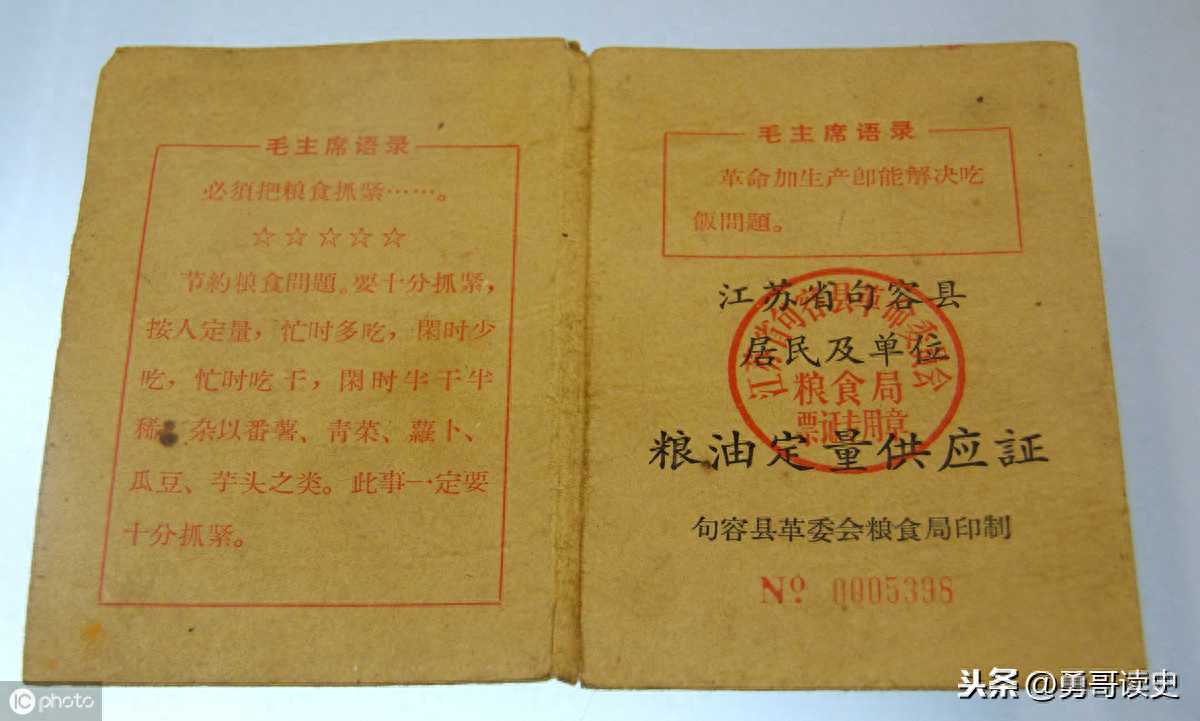 毛主席语录
必須把粮食抓紧……。
☆☆☆☆☆
节約粮食問題。要十分抓紧，
按人定量，忙时多吃，閑时少
吃，忙时吃干，閑时半干半
稀，杂以番薯、青菜、蘿卜、
瓜豆、芋头之类。此事一定要
十分抓紧。
毛主席语录
革命加生产卽能解决吃
飯問題。
江苏省句容县
居民及单位
粮油定量供应証
江苏省句容县革命委员会
粮食局
票证专用章
句容县革委会粮食局印制
Nº 0005398
iC photo
头条@勇哥读史